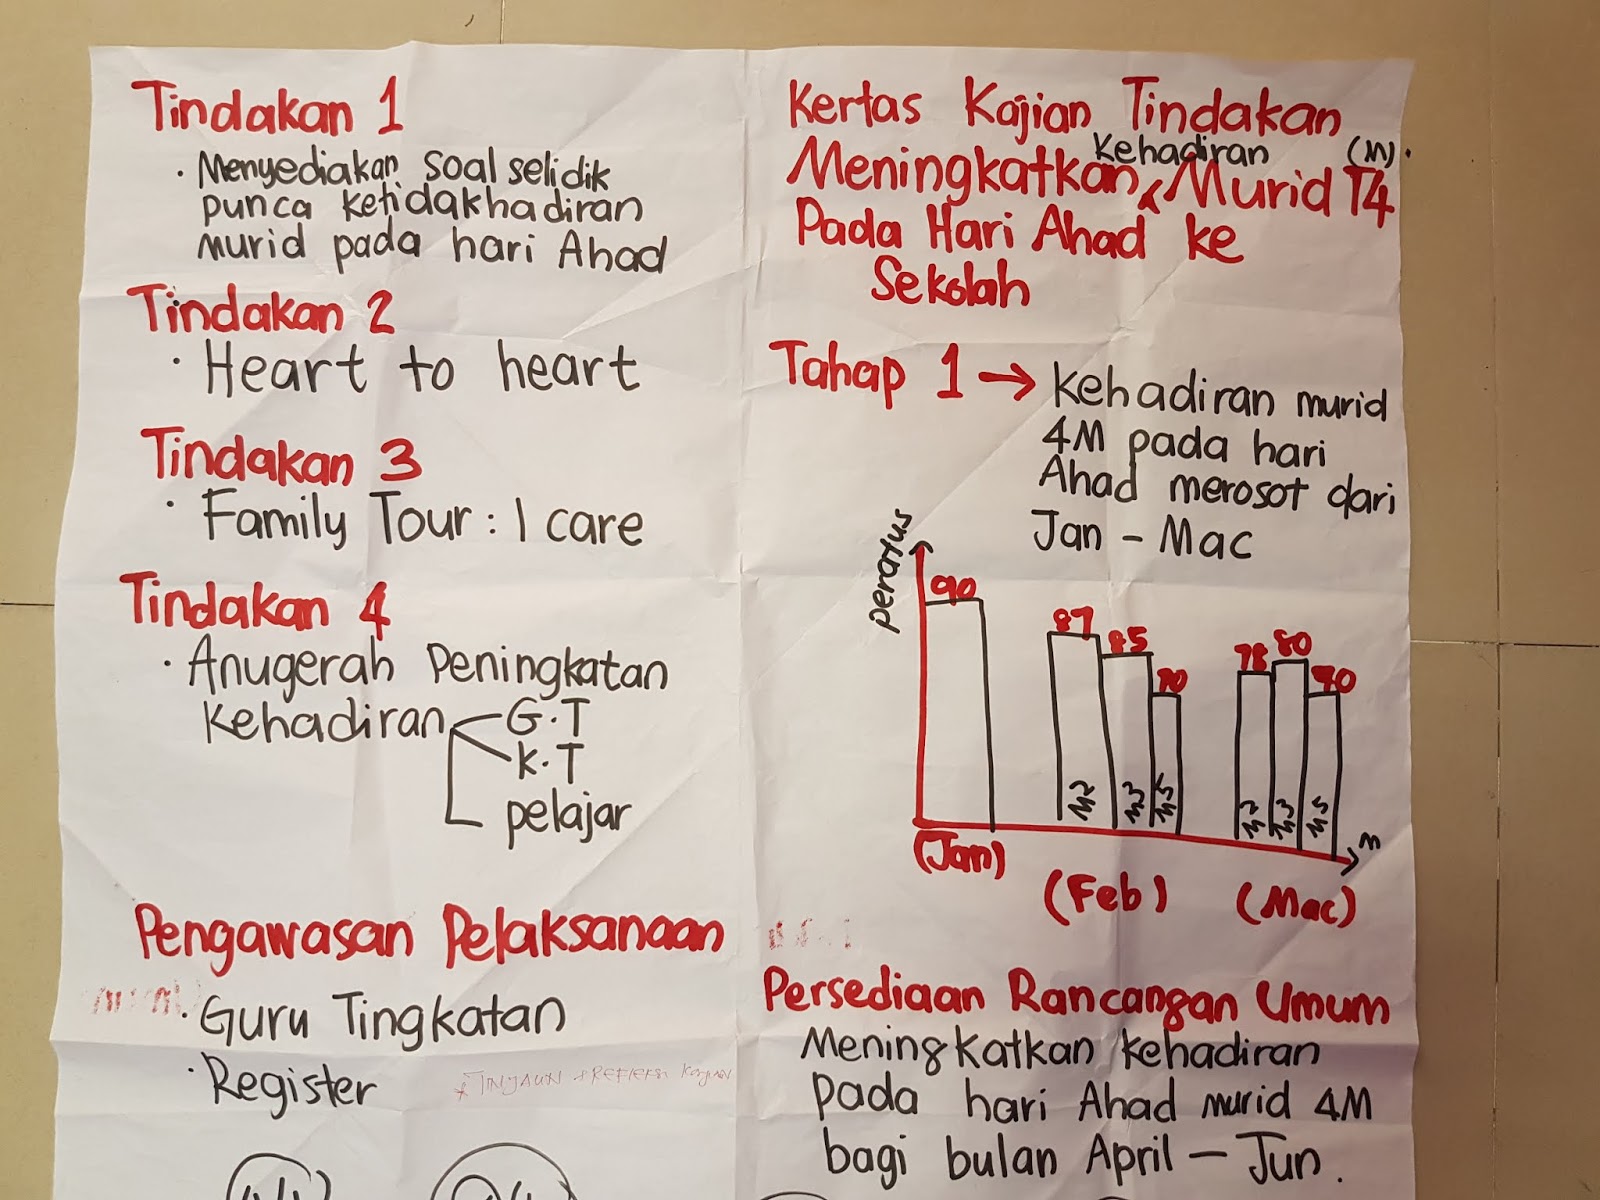 Tindakan 1
· Menyediakan soal selidik
punca ketidakhadiran
murid pada hari Ahad
Tindakan 2
· Heart to heart
Tindakan 3
· Family Tour : I care
Tindakan 4
· Anugerah Peningkatan
Kehadiran G.T
K.T
pelajar
Pengawasan Pelaksanaan
· Guru Tingkatan
· Register
Kertas Kajian Tindakan
Kehadiran (M).
Meningkatkan Murid T4
Pada Hari Ahad ke
Sekolah
Tahap 1 → Kehadiran murid
4M pada hari
Ahad merosot dari
Jan - Mac
peratus
90
87 85 70
78 80 70
M2 M3 M5
M2 M3 M5
m
(Jan)
(Feb) (Mac)
Persediaan Rancangan Umum
Meningkatkan kehadiran
pada hari Ahad murid 4M
bagi bulan April - Jun.